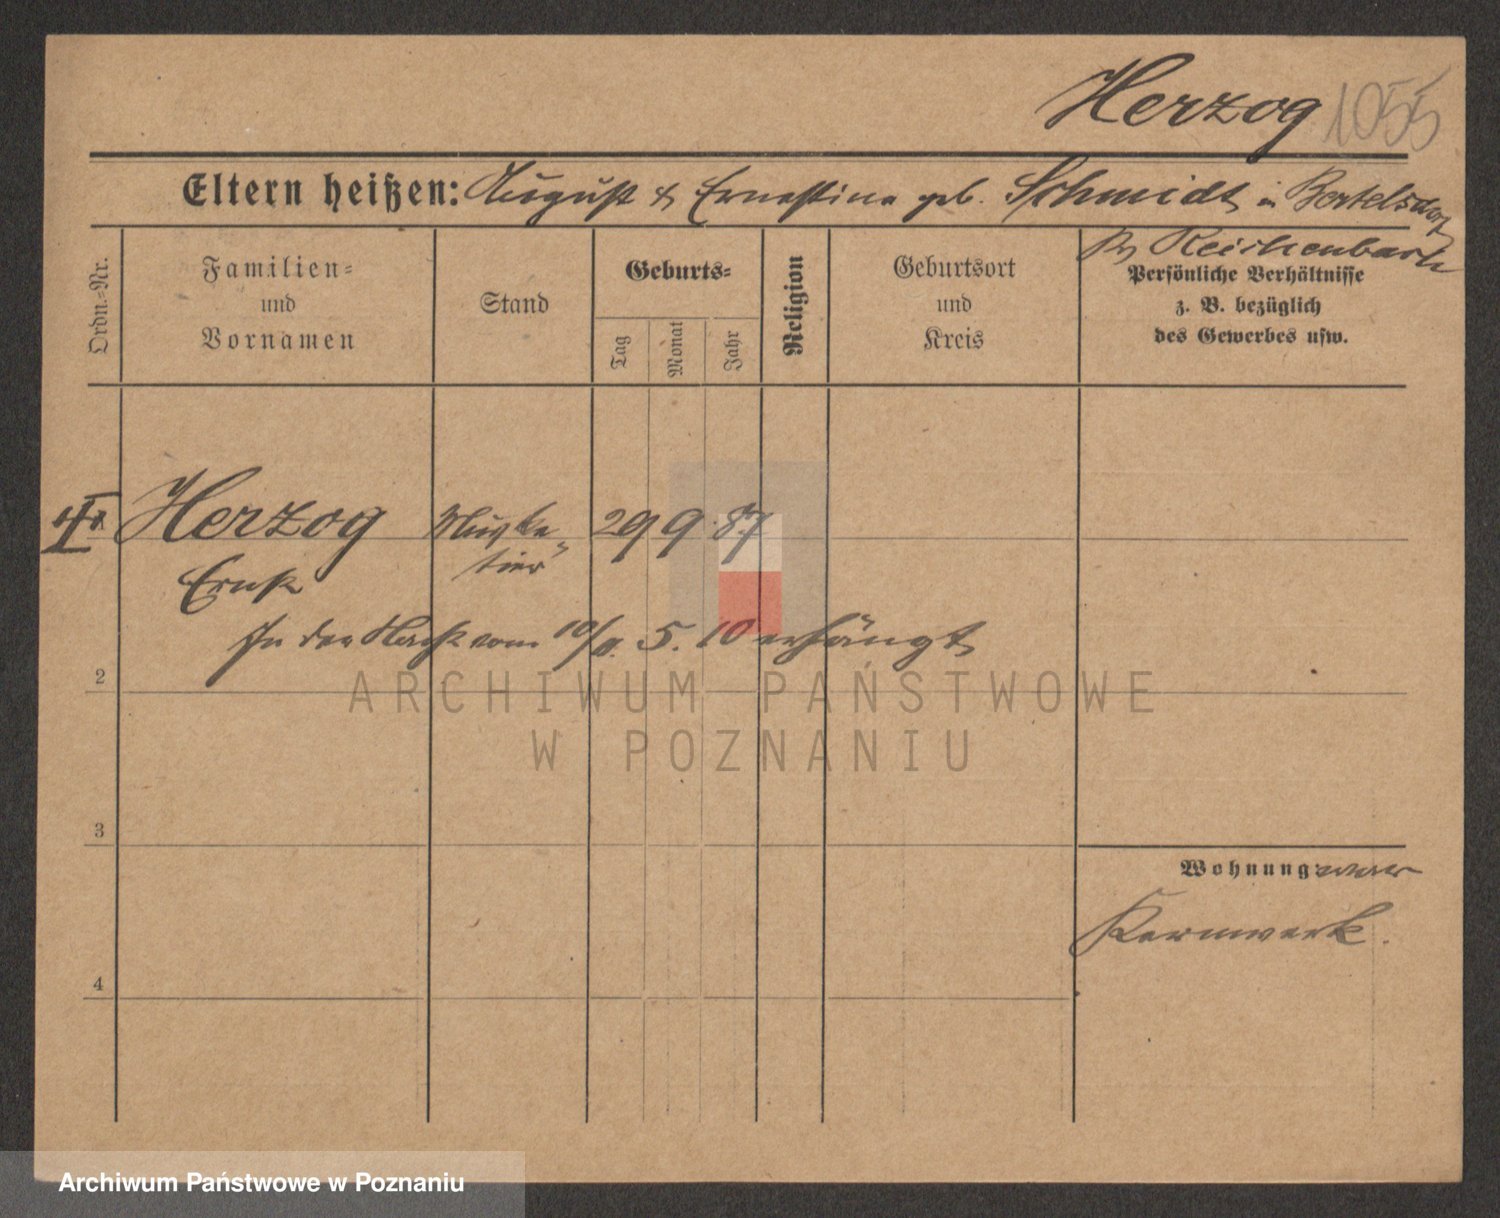 Herzog 1055
Eltern heißen: August & Ernestine geb. Schmidt in Bertelsdorf
Kr. Reichenbach
Ordn.-Nr.
Familien-
und
Vornamen
Stand
Geburts-
Tag
Monat
Jahr
Religion
Geburtsort
und
Kreis
Persönliche Verhältnisse
z. B. bezüglich
des Gewerbes usw.
Herzog Muske- 29 9 87
Ernst tier
In der Nacht vom 10/11. 5. 10 erhängt
2
ARCHIWUM PAŃSTWOWE
W POZNANIU
3
Wohnung
Kernwerk.
4
Archiwum Państwowe w Poznaniu